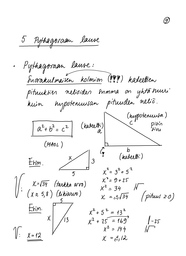 5 Pythagoraan lause
• Pythagoraan lause:
Suorakulmaisen kolmion (!!!) kateettien
pituuksien neliöiden summa on yhtä suuri
kuin hypotenuusan pituuden neliö.
a² + b² = c²
(MAOL)
(kateetti)
a
(hypotenuusa)
c
pisin
sivu
b
(kateetti)
Esim.
x
3
5
x² = 3² + 5²
x² = 9 + 25
x² = 34 √
x = √34 (pituus ≥ 0)
V: x = √34 (tarkka arvo)
(x ≈ 5,8) (likiarvo)
Esim.
x
5
13
x² + 5² = 13²
x² + 25 = 169 | -25
x² = 144 √
x = 12
V: x = 12